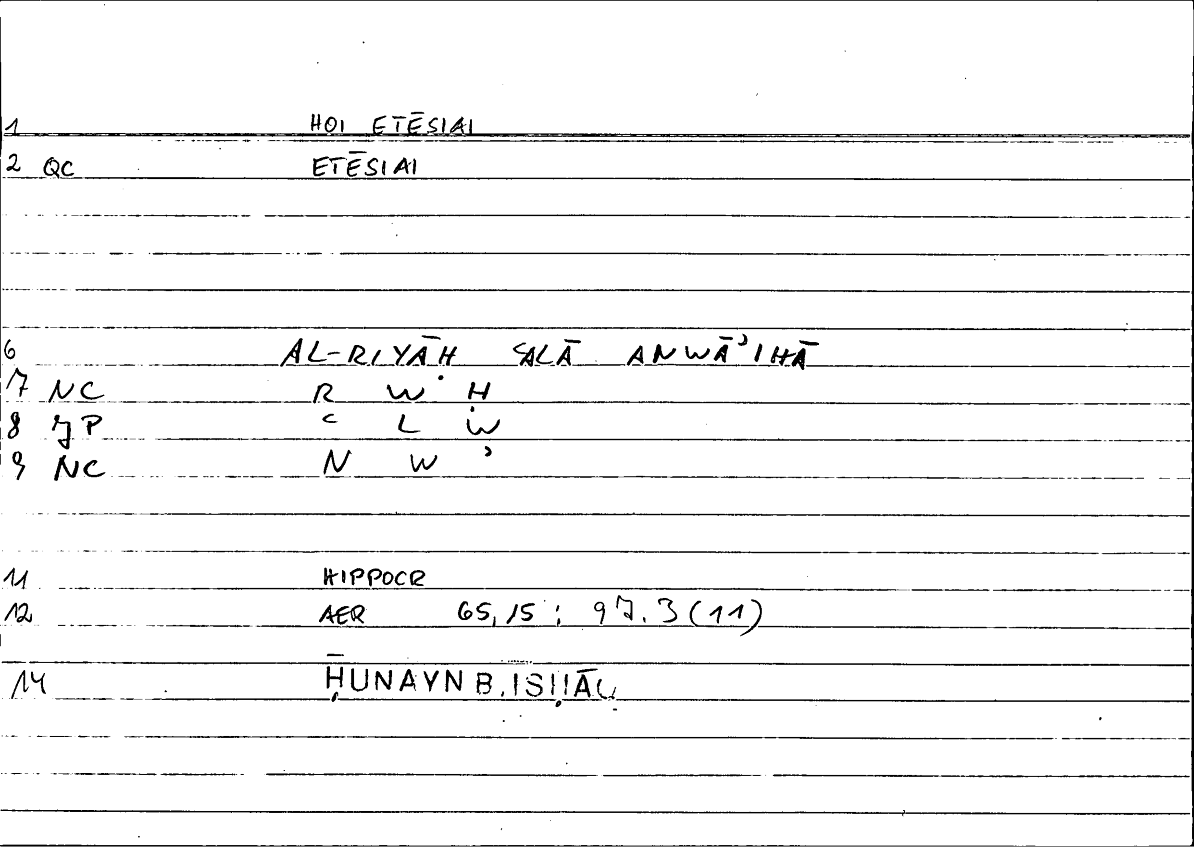 1 HOI ETĒSIAI
2 QC ETĒSIAI
6 AL-RIYĀḤ ʿALĀ ANWĀʾIHĀ
7 NC R W Ḥ
8 JP ʿ L W
9 NC N W ʾ
11 HIPPOCR
12 AER 65,15 ; 97.3 (11)
14 ḤUNAYN B. ISḤĀQ